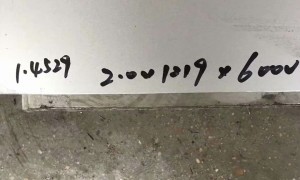 1.4529 2.00 1219 * 6000